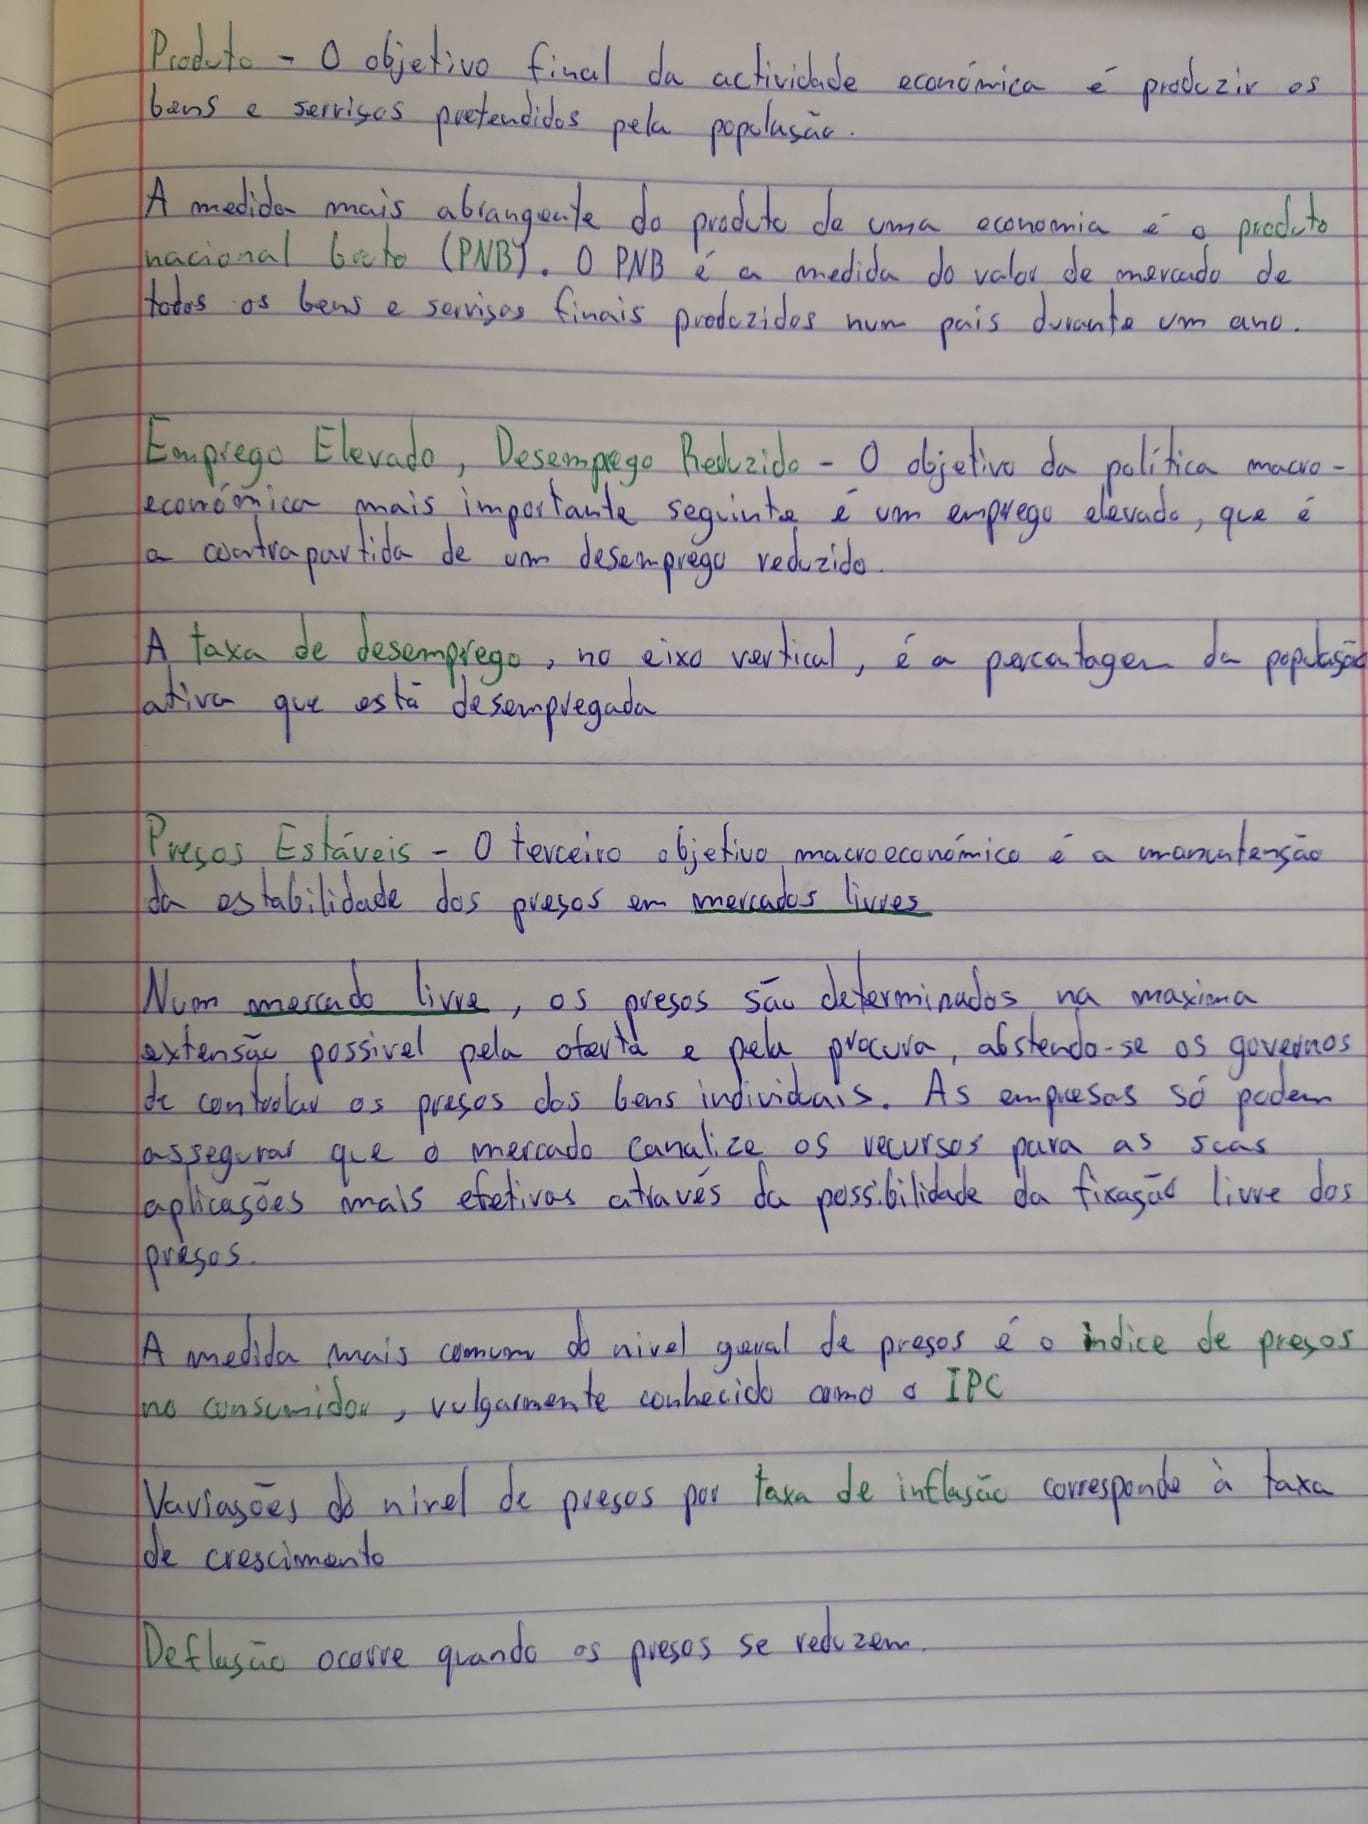 Produto - O objetivo final da actividade económica é produzir os
bens e serviços pretendidos pela população.
A medida mais abrangente do produto de uma economia é o produto
nacional bruto (PNB). O PNB é a medida do valor de mercado de
todos os bens e serviços finais produzidos num pais durante um ano.
Emprego Elevado, Desemprego Reduzido - O objetivo da política macro-
económica mais importante seguinte é um emprego elevado, que é
a contrapartida de um desemprego reduzido.
A taxa de desemprego, no eixo vertical, é a percentagem da população
ativa que está desempregada
Preços Estáveis - O terceiro objetivo macroeconómico é a manutenção
da estabilidade dos preços em mercados livres
Num mercado livre, os preços são determinados na maxima
extensão possivel pela oferta e pela procura, abstendo-se os governos
de controlar os preços dos bens individuais. As empresas só podem
assegurar que o mercado canalize os recursos para as suas
aplicações mais efetivas através da possibilidade da fixação livre dos
preços.
A medida mais comum do nivel geral de preços é o indice de preços
no consumidor, vulgarmente conhecido como o IPC
Variações do nivel de preços por taxa de inflação corresponde à taxa
de crescimento
Deflação ocorre quando os preços se reduzem.